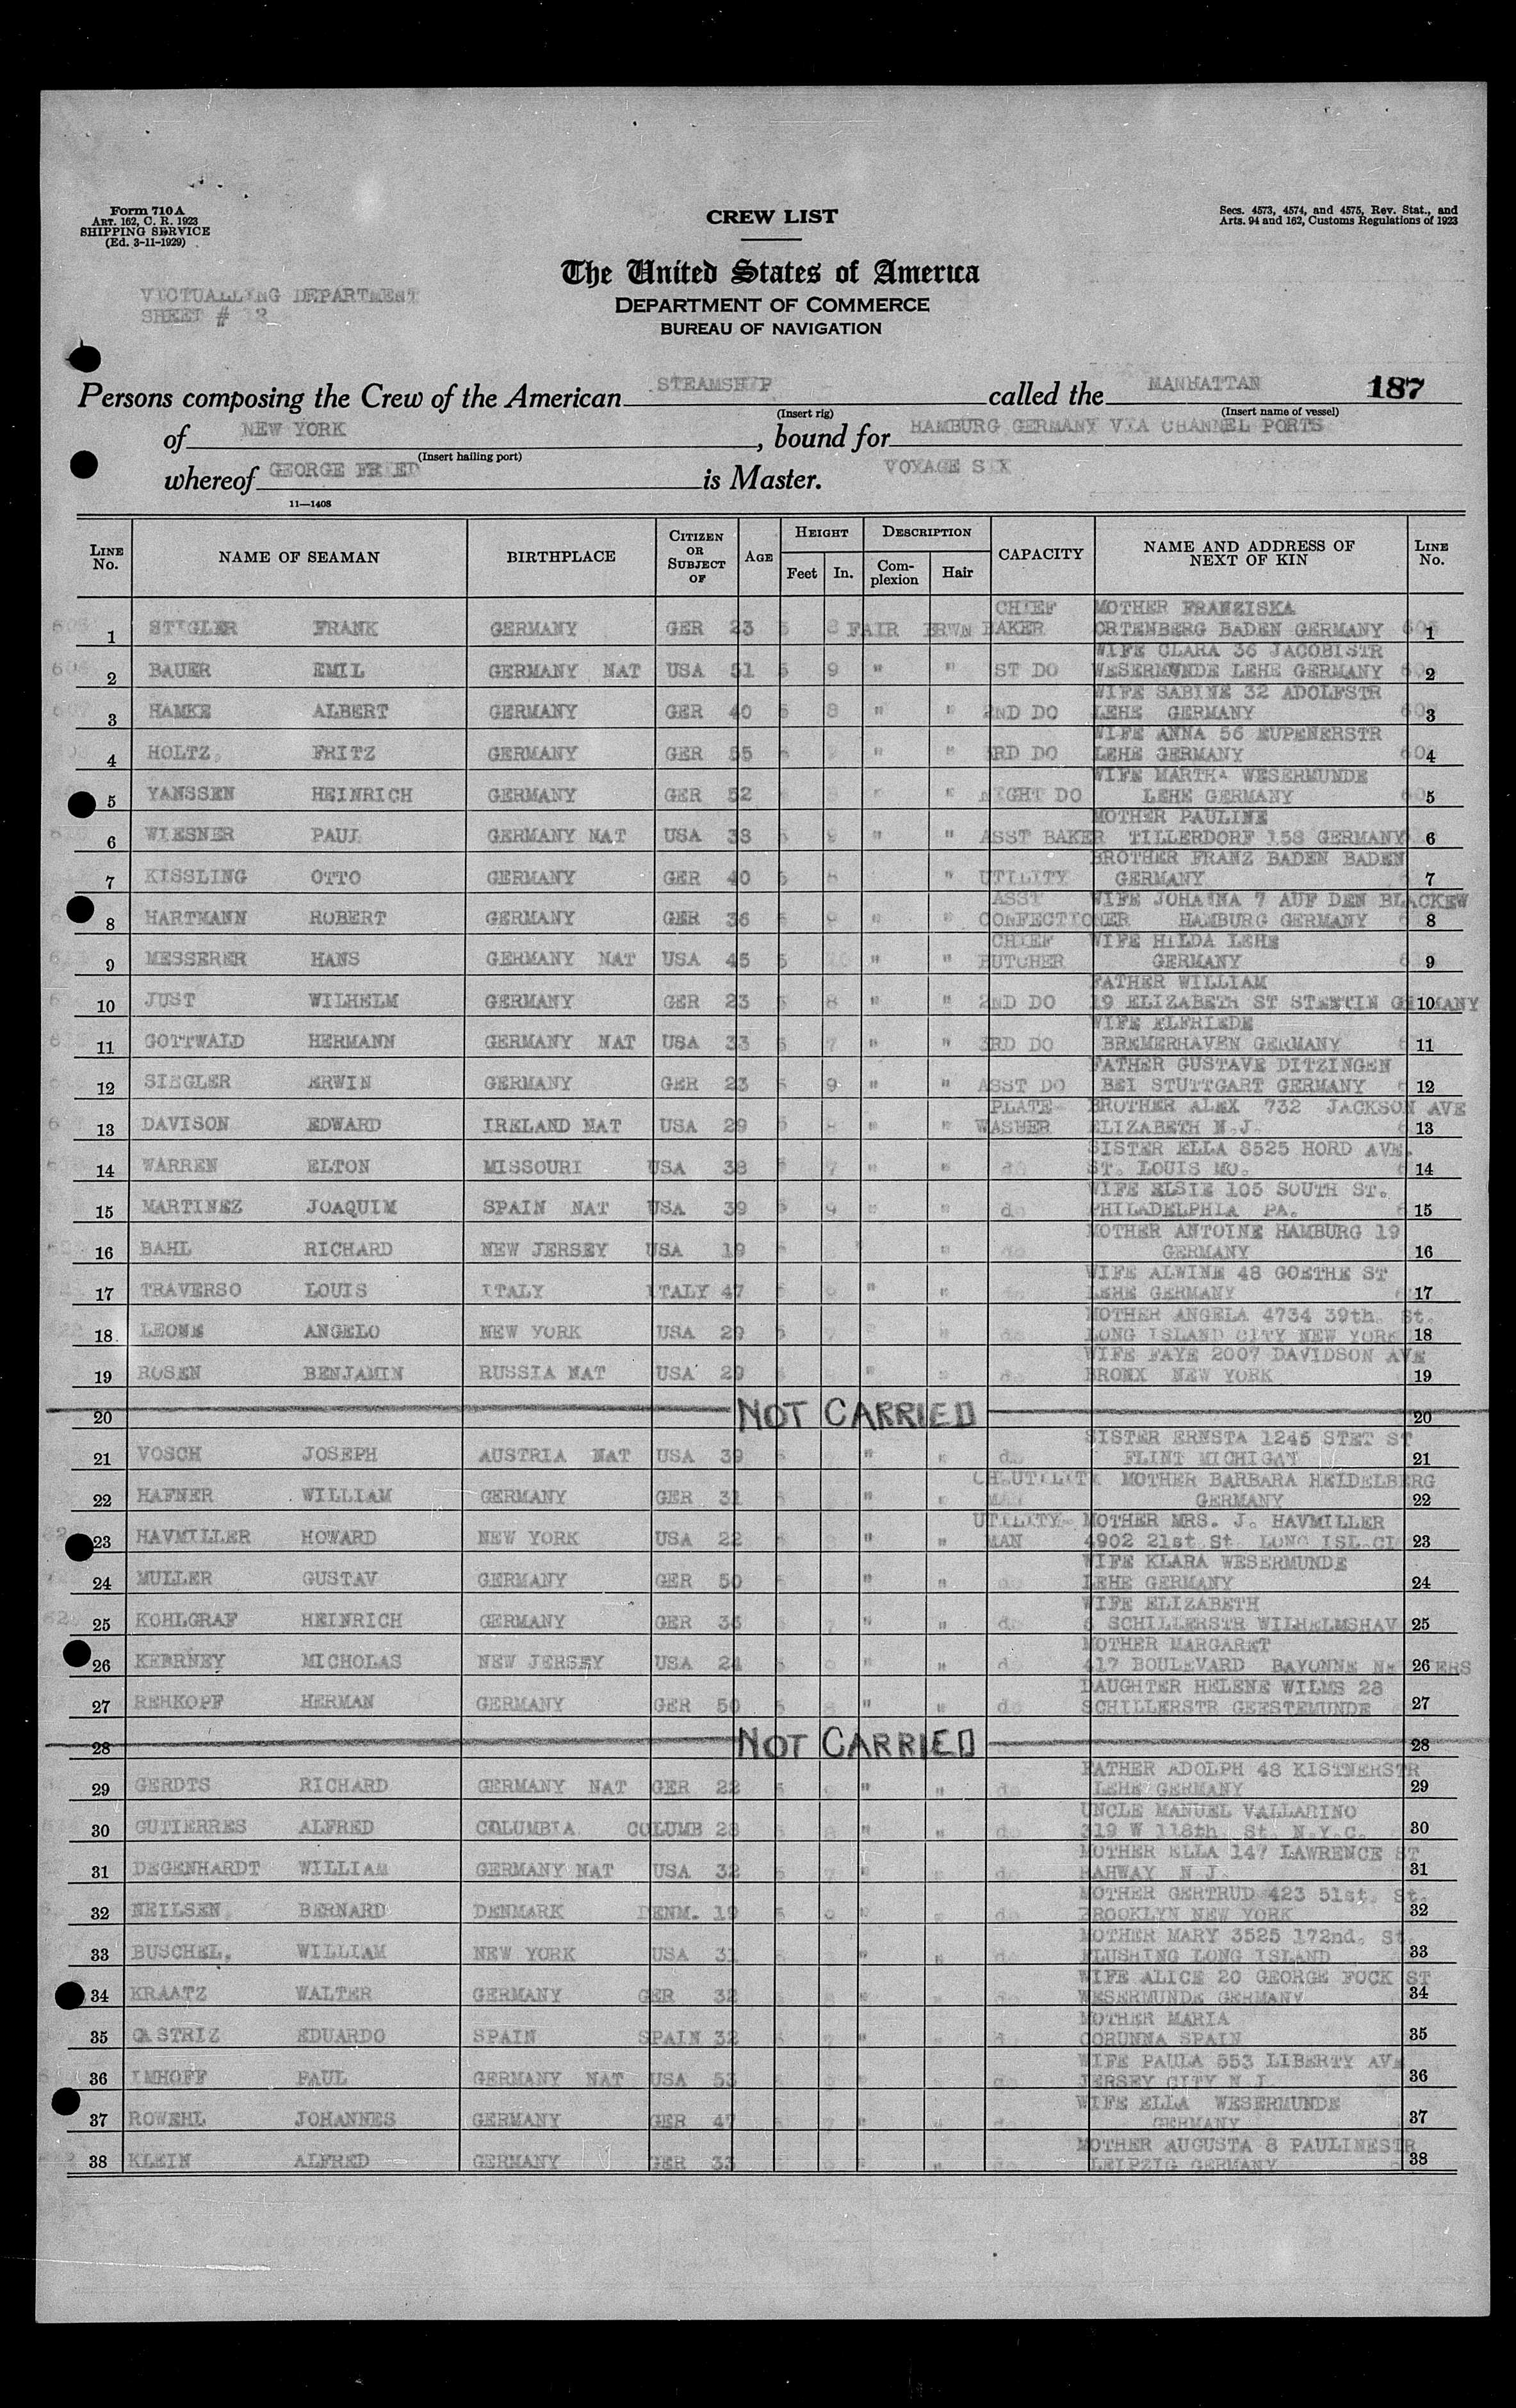 Form 710A
ART. 162, C. R. 1923
SHIPPING SERVICE
(Ed. 3-11-1929)
CREW LIST
Secs. 4573, 4574, and 4575, Rev. Stat., and
Arts. 94 and 162, Customs Regulations of 1923
The United States of America
DEPARTMENT OF COMMERCE
BUREAU OF NAVIGATION
VICTUALLING DEPARTMENT
SHEET # 12
Persons composing the Crew of the American STEAMSHIP called the MANHATTAN 187
(Insert rig) (Insert name of vessel)
of NEW YORK, bound for HAMBURG GERMANY VIA CHANNEL PORTS
(Insert hailing port)
whereof GEORGE FRIED is Master. VOYAGE SIX
11—1408
LINE No. NAME OF SEAMAN BIRTHPLACE CITIZEN OR SUBJECT OF AGE HEIGHT Feet In. DESCRIPTION Complexion Hair CAPACITY NAME AND ADDRESS OF NEXT OF KIN LINE No.
CHIEF MOTHER FRANZISKA
1 STIGLER FRANK GERMANY GER 23 5 8 FAIR BRWN BAKER ORTENBERG BADEN GERMANY 1
WIFE CLARA 36 JACOBISTR
2 BAUER EMIL GERMANY NAT USA 51 5 9 " " ST DO WESERMUNDE LEHE GERMANY 2
WIFE SABINE 32 ADOLFSTR
3 HAMKE ALBERT GERMANY GER 40 5 8 " " 2ND DO LEHE GERMANY 3
WIFE ANNA 56 EUPENERSTR
4 HOLTZ, FRITZ GERMANY GER 55 5 " " 3RD DO LEHE GERMANY 4
WIFE MARTHA WESERMUNDE
5 YANSSEN HEINRICH GERMANY GER 52 " " NIGHT DO LEHE GERMANY 5
MOTHER PAULINE
6 WIESNER PAUL GERMANY NAT USA 38 5 9 " " ASST BAKER TILLERDORF 158 GERMANY 6
BROTHER FRANZ BADEN BADEN
7 KISSLING OTTO GERMANY GER 40 5 8 " UTILITY GERMANY 7
ASST WIFE JOHANNA 7 AUF DEN BLACKEW
8 HARTMANN ROBERT GERMANY GER 36 5 9 " " CONFECTIONER HAMBURG GERMANY 8
CHIEF WIFE HILDA LEHE
9 MESSERER HANS GERMANY NAT USA 45 5 10 " " BUTCHER GERMANY 9
FATHER WILLIAM
10 JUST WILHELM GERMANY GER 23 5 8 " " 2ND DO 19 ELIZABETH ST STENTIN GERMANY 10
WIFE ELFRIEDE
11 GOTTWALD HERMANN GERMANY NAT USA 33 5 7 " " 3RD DO BREMERHAVEN GERMANY 11
FATHER GUSTAVE DITZINGEN
12 SIEGLER ERWIN GERMANY GER 23 5 9 " " ASST DO BEI STUTTGART GERMANY 12
PLATE BROTHER ALEX 732 JACKSON AVE
13 DAVISON EDWARD IRELAND NAT USA 29 5 8 " " WASHER ELIZABETH N.J. 13
SISTER ELLA 8525 HORD AVE.
14 WARREN ELTON MISSOURI USA 38 5 7 " " do ST. LOUIS MO. 14
WIFE ELSIE 105 SOUTH ST.
15 MARTINEZ JOAQUIM SPAIN NAT USA 39 5 9 " " do PHILADELPHIA PA. 15
MOTHER ANTOINE HAMBURG 19
16 BAHL RICHARD NEW JERSEY USA 19 5 " do GERMANY 16
WIFE ALWINE 48 GOETHE ST
17 TRAVERSO LOUIS ITALY ITALY 47 " " do LEHE GERMANY 17
MOTHER ANGELA 4734 39th. St.
18 LEONE ANGELO NEW YORK USA 29 5 7 " " do LONG ISLAND CITY NEW YORK 18
WIFE FAYE 2007 DAVIDSON AVE
19 ROSEN BENJAMIN RUSSIA NAT USA 29 " " do BRONX NEW YORK 19
20 NOT CARRIED 20
SISTER ERNSTA 1245 STET ST
21 VOSCH JOSEPH AUSTRIA NAT USA 39 " " do FLINT MICHIGAT 21
CH.UTILITY MOTHER BARBARA HEIDELBERG
22 HAFNER WILLIAM GERMANY GER 31 " " MAN GERMANY 22
UTILITY MOTHER MRS. J. HAVMILLER
23 HAVMILLER HOWARD NEW YORK USA 22 " " MAN 4902 21st St. LONG ISL CI 23
WIFE KLARA WESERMUNDE
24 MULLER GUSTAV GERMANY GER 50 " " do LEHE GERMANY 24
WIFE ELIZABETH
25 KOHLGRAF HEINRICH GERMANY GER 36 " " do 6 SCHILLERSTR WILHELMSHAV 25
MOTHER MARGARET
26 KEERNEY MICHOLAS NEW JERSEY USA 24 " " do 417 BOULEVARD BAYONNE 26
DAUGHTER HELENE WILMS 28
27 REHKOPF HERMAN GERMANY GER 50 " " do SCHILLERSTR GEESTEMUNDE 27
28 NOT CARRIED 28
FATHER ADOLPH 48 KISTNERSTR
29 GERDTS RICHARD GERMANY NAT GER 22 " " do LEHE GERMANY 29
UNCLE MANUEL VALLARINO
30 GUTIERRES ALFRED COLUMBIA COLUMB 28 " " do 319 W 118th St. N.Y.C. 30
MOTHER ELLA 147 LAWRENCE ST
31 DEGENHARDT WILLIAM GERMANY NAT USA 32 " " do RAHWAY N J. 31
MOTHER GERTRUD 423 51st. St.
32 NEILSEN, BERNARD DENMARK DENM. 19 " " do BROOKLYN NEW YORK 32
MOTHER MARY 3525 172nd. St.
33 BUSCHEL, WILLIAM NEW YORK USA 31 " " do FLUSHING LONG ISLAND 33
WIFE ALICE 20 GEORGE FOCK ST
34 KRAATZ WALTER GERMANY GER 32 do WESERMUNDE GERMANY 34
MOTHER MARIA
35 CASTRIZ EDUARDO SPAIN SPAIN 32 " " CORUNNA SPAIN 35
WIFE PAULA 553 LIBERTY AVE
36 IMHOFF PAUL GERMANY NAT USA 53 do JERSEY CITY N J. 36
WIFE ELLA WESERMUNDE
37 ROWEHL JOHANNES GERMANY GER 47 " " do GERMANY 37
MOTHER AUGUSTA 8 PAULINESTR
38 KLEIN ALFRED GERMANY GER 33 " LEIPZIG GERMANY 38